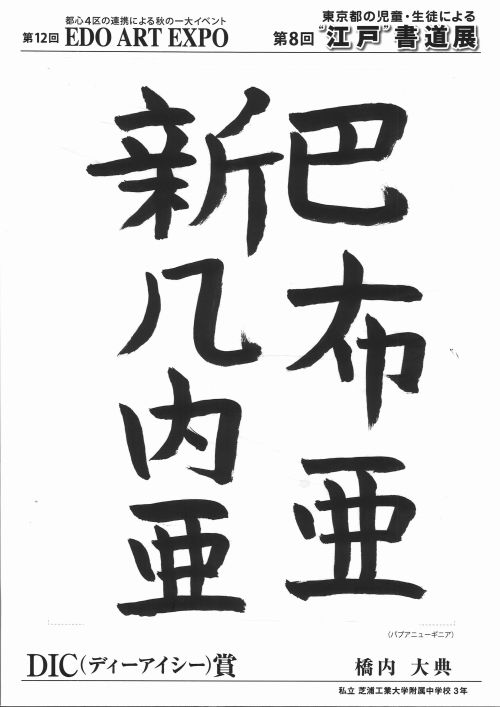 都心4区の連携による秋の一大イベント
第12回 EDO ART EXPO
東京都の児童・生徒による
第8回 “江戸”書道展
巴布亜
新几内亜
(パプアニューギニア)
DIC(ディーアイシー)賞
橋内 大典
私立 芝浦工業大学附属中学校 3年